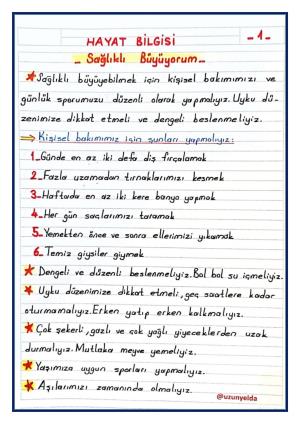 HAYAT BİLGİSİ
-1-
- Sağlıklı Büyüyorum -
★Sağlıklı büyüyebilmek için kişisel bakımımızı ve
günlük sporumuzu düzenli olarak yapmalıyız. Uyku dü-
zenimize dikkat etmeli ve dengeli beslenmeliyiz.
⇒ Kişisel bakımımız için şunları yapmalıyız:
1-Günde en az iki defa diş fırçalamak
2-Fazla uzamadan tırnaklarımızı kesmek
3-Haftada en az iki kere banyo yapmak
4-Her gün saçlarımızı taramak
5-Yemekten önce ve sonra ellerimizi yıkamak
6-Temiz giysiler giymek
★ Dengeli ve düzenli beslenmeliyiz. Bol bol su içmeliyiz.
★ Uyku düzenimize dikkat etmeli, geç saatlere kadar
oturmamalıyız. Erken yatıp erken kalkmalıyız.
★ Çok şekerli, gazlı ve çok yağlı yiyeceklerden uzak
durmalıyız. Mutlaka meyve yemeliyiz.
★ Yaşımıza uygun sporları yapmalıyız.
★ Aşılarımızı zamanında olmalıyız.
@uzunyelda